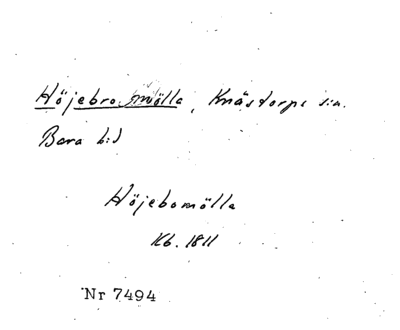 Höjebro mölla, Knästorps sn.
Bara hd
Höjebomölla
Kb. 1811
Nr 7494